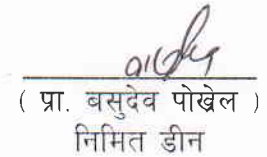 ( प्रा. बसुदेव पोख्रेल )
निमित डीन